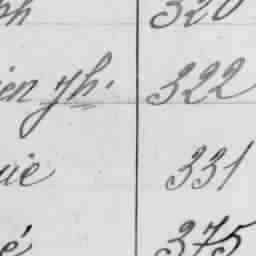 ph 320
ien jh. 322
uie 331
é 375